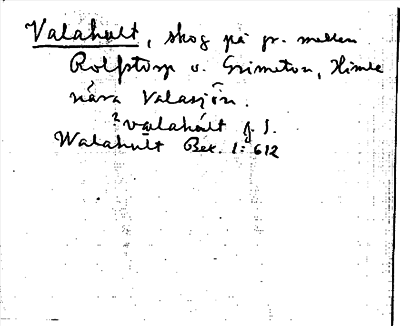 Valahult, skog på gr. mellan
Rolfstorp o. Grimeton, Himle
nära Valasjön.
²valahùlt J. S.
Walahult Bex. 1: 612